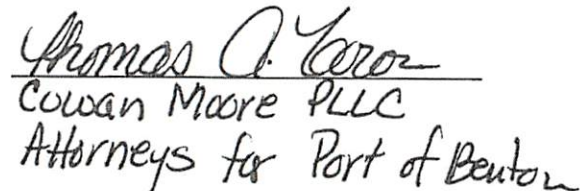 Thomas A.
Cowan Moore PLLC
Attorneys for Port of Benton